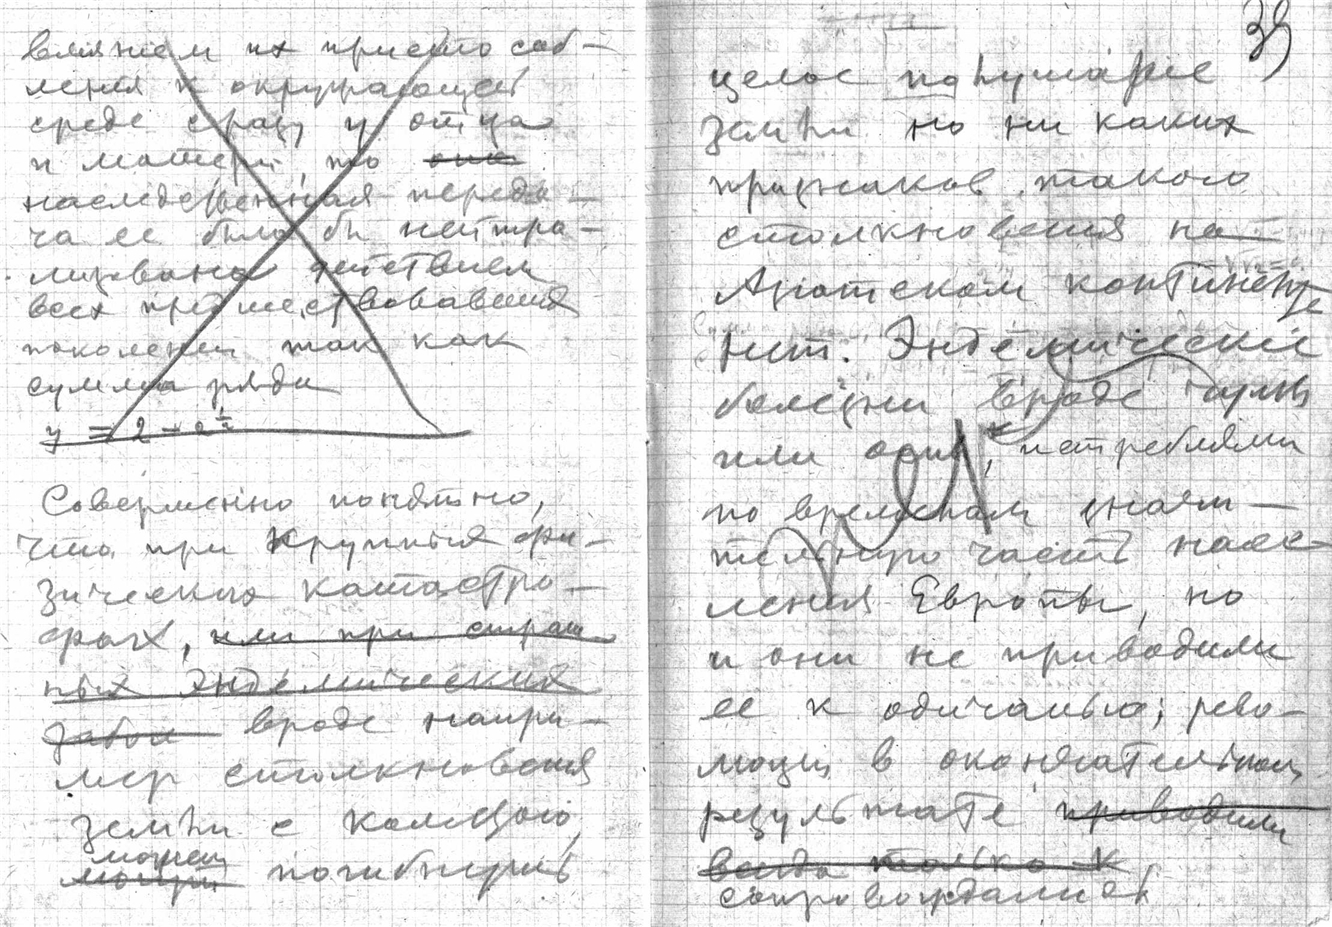 влиянием их приспособ-
ления к окружающей
среде сразу у отца
и матери, то они
наследственная переда-
ча ее была бы нейтра-
лизована действием
всех предшествовавших
поколений так как
сумма ряда
y = 2 -
Совершенно понятно,
что при крупных фи-
зических катастро-
фах, или при страш
ных эндемических
забол вроде напри-
мер столкновения
земли с кометою,
может
могут погибнуть
39
целое полушарие
земли но ни каких
признаков такого
столкновения на
Азиатском континенте
нет. Эндемические
болезни вроде чумы
или оспы, истребляли
по временам значи-
тельную часть насе-
ления Европы, но
и они не приводили
ее к одичанью; рево-
люции в окончательном
результате приводили
всегда только к
сопровождались